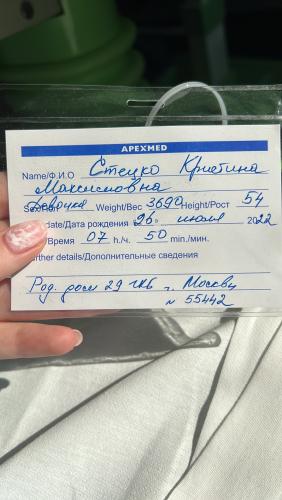 APEXMED
Name/Ф.И.О Стецко Кристина
Максимовна
Девочка Weight/Вес 3690 Height/Рост 54
date/Дата рождения 26. июля 2022
Время 07 h./ч. 50 min./мин.
rther details/Дополнительные сведения
Род. дом 29 ГКБ г. Москвы
№ 55442